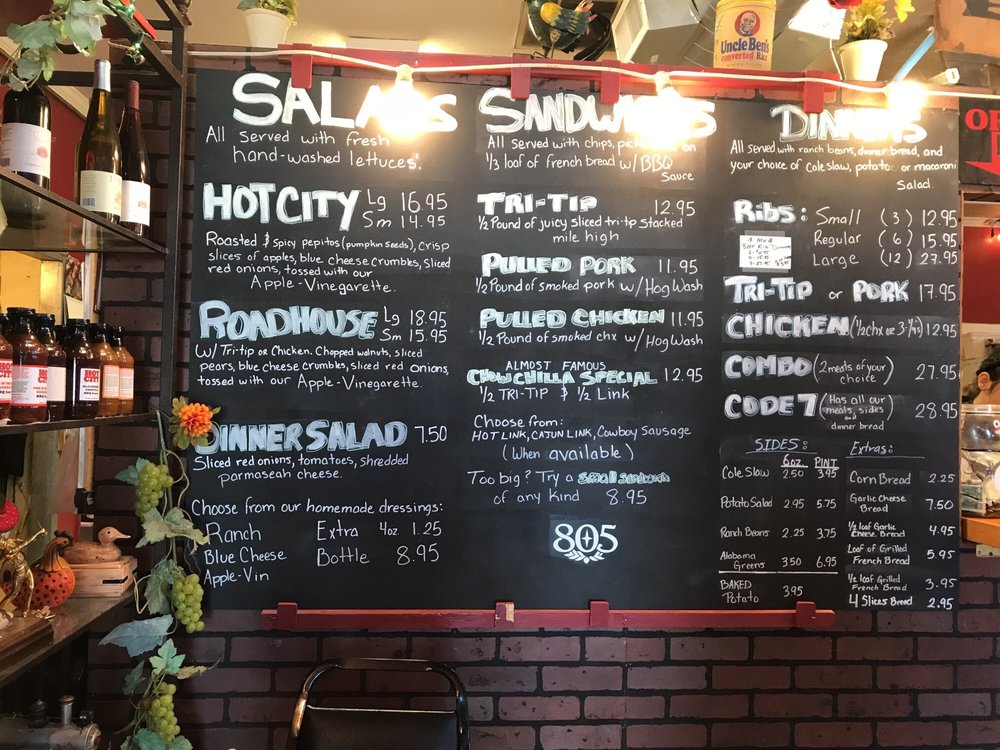 Uncle Ben's
converted Rice
SALADS
All served with fresh
hand-washed lettuces.
HOT CITY Lg 16.95
Sm 14.95
Roasted & Spicy pepitos (pumpkin seeds), crisp
slices of apples, blue cheese crumbles, sliced
red onions, tossed with our
Apple-Vinegarette.
ROADHOUSE Lg 18.95
Sm 15.95
W/ Tri-tip or Chicken. Chopped walnuts, sliced
pears, blue cheese crumbles, sliced red onions,
tossed with our Apple-Vinegarette.
DINNER SALAD 7.50
Sliced red onions, tomatoes, shredded
parmaseah cheese.
Choose from our homemade dressings:
Ranch Extra 4oz 1.25
Blue Cheese Bottle 8.95
Apple-Vin
SANDWICHES
All served with chips, on
1/3 loaf of french bread w/ BBQ
Sauce
TRI-TIP 12.95
1/2 Pound of juicy sliced tri-tip stacked
mile high
PULLED PORK 11.95
1/2 Pound of smoked pork w/ Hog Wash
PULLED CHICKEN 11.95
1/2 Pound of smoked chx w/ Hog Wash
ALMOST FAMOUS
CHOWCHILLA SPECIAL 12.95
1/2 TRI-TIP & 1/2 Link
Choose from:
HOT LINK, CAJUN LINK, Cowboy Sausage
(When available)
Too big? Try a small sandwich
of any Kind 8.95
805
DINNERS
All served with ranch beans, dinner bread, and
your choice of Coleslaw, potato or macaroni
Salad.
Ribs: Small (3) 12.95
Regular (6) 15.95
Large (12) 27.95
TRI-TIP or PORK 17.95
CHICKEN (1/2 chx or 3-1/4's) 12.95
COMBO (2 meats of your
choice) 27.95
CODE 7 (Has all our
meats, sides
and
dinner bread) 28.95
SIDES:
6oz. PINT
Cole Slaw 2.50 3.95
Potato Salad 2.95 5.75
Ranch Beans 2.25 3.75
Alabama
Greens 3.50 6.95
BAKED
Potato 3.95
Extras:
Corn Bread 2.25
Garlic Cheese
Bread 7.50
1/2 loaf Garlic
Cheese Bread 4.95
Loaf of Grilled
French Bread 5.95
1/2 loaf Grilled
French Bread 3.95
4 Slices Bread 2.95
HOT
CITY